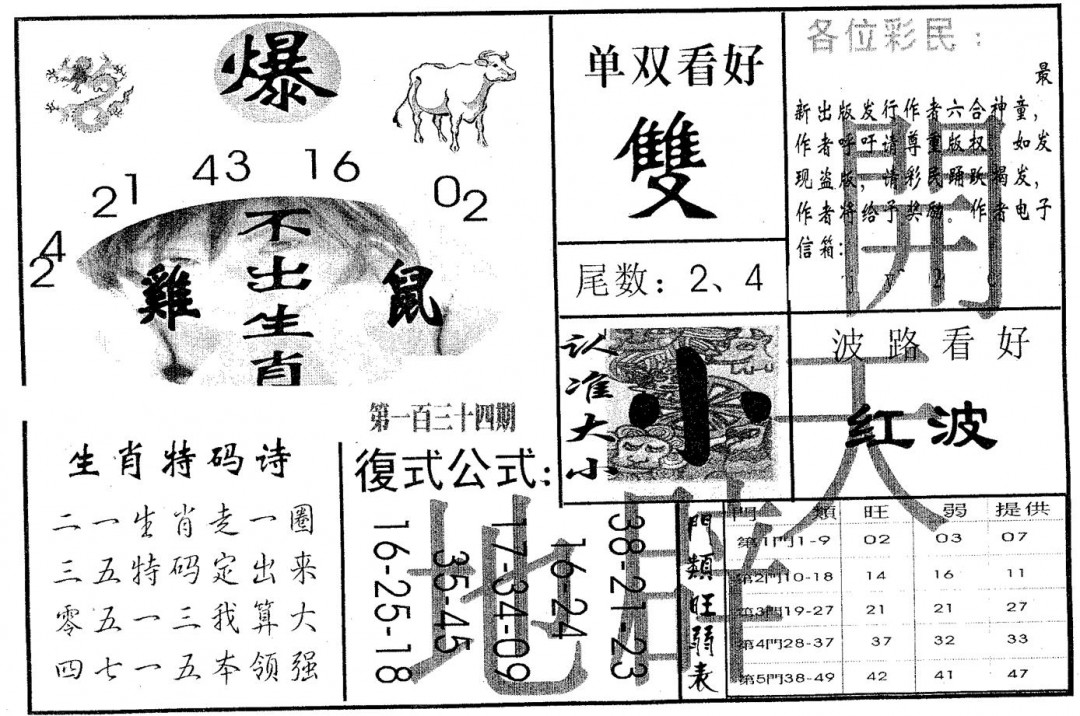 爆
24
21
43
16
02
不出生肖
雞
鼠
单双看好
雙
尾数：2、4
各位彩民：
最
新出版发行作者六合神童，
作者呼吁请尊重版权，如发
现盗版，请彩民踊跃揭发，
作者将给予奖励。作者电子
信箱：
開
天
地
认准大小
小
波路看好
红波
第一百三十四期
生肖特码诗
二一生肖走一圈
三五特码定出来
零五一三我算大
四七一五本领强
復式公式：
16-25-18
35-45
17-34-09
16-24
38-21-23
門類旺弱表
門類 旺 弱 提供
第1門1-9 02 03 07
第2門10-18 14 16 11
第3門19-27 21 21 27
第4門28-37 37 32 33
第5門38-49 42 41 47